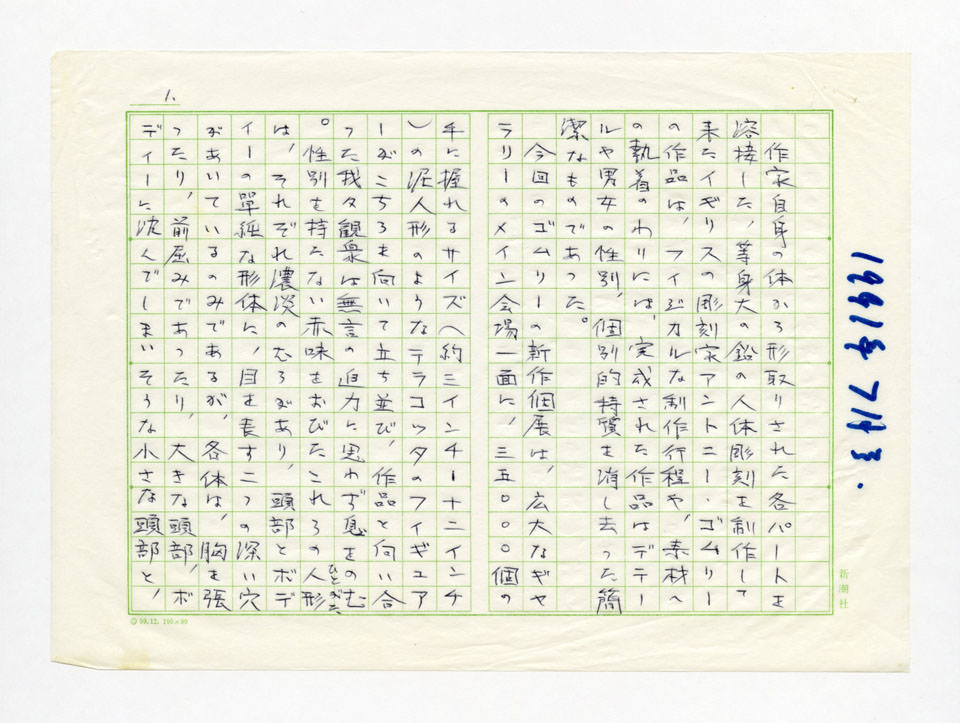 1991年7月号.
1.
作家自身の体から形取りされた各パートを
溶接した、等身大の鉛の人体彫刻を制作して
来たイギリスの彫刻家アントニー・ゴムリー
の作品は、フィジカルな制作行程や、素材へ
の執着のわりには、完成された作品はデテー
ルや男女の性別、個別的特質を消し去った簡
潔なものであった。
今回のゴムリーの新作個展は、広大なギャ
ラリーのメイン会場一面に、三五〇〇〇個の
手に握れるサイズ(約三インチー十二インチ
)の泥人形のようなテラコッタのフィギュア
ーがこちらを向いて立ち並び、作品と向い合
った我々観衆は無言の迫力に思わず息をのむ
。性別を持たない赤味をおびたこれらの人形(ひとがた)
は、それぞれ濃淡のむらがあり、頭部とボデ
イーの單純な形体に、目を表す二つの深い穴
があいているのみであるが、各体は、胸を張
ったり、前屈みであったり、大きな頭部、ボ
ディーに沈んでしまいそうな小さな頭部と、
新潮社
59.12. 100×90